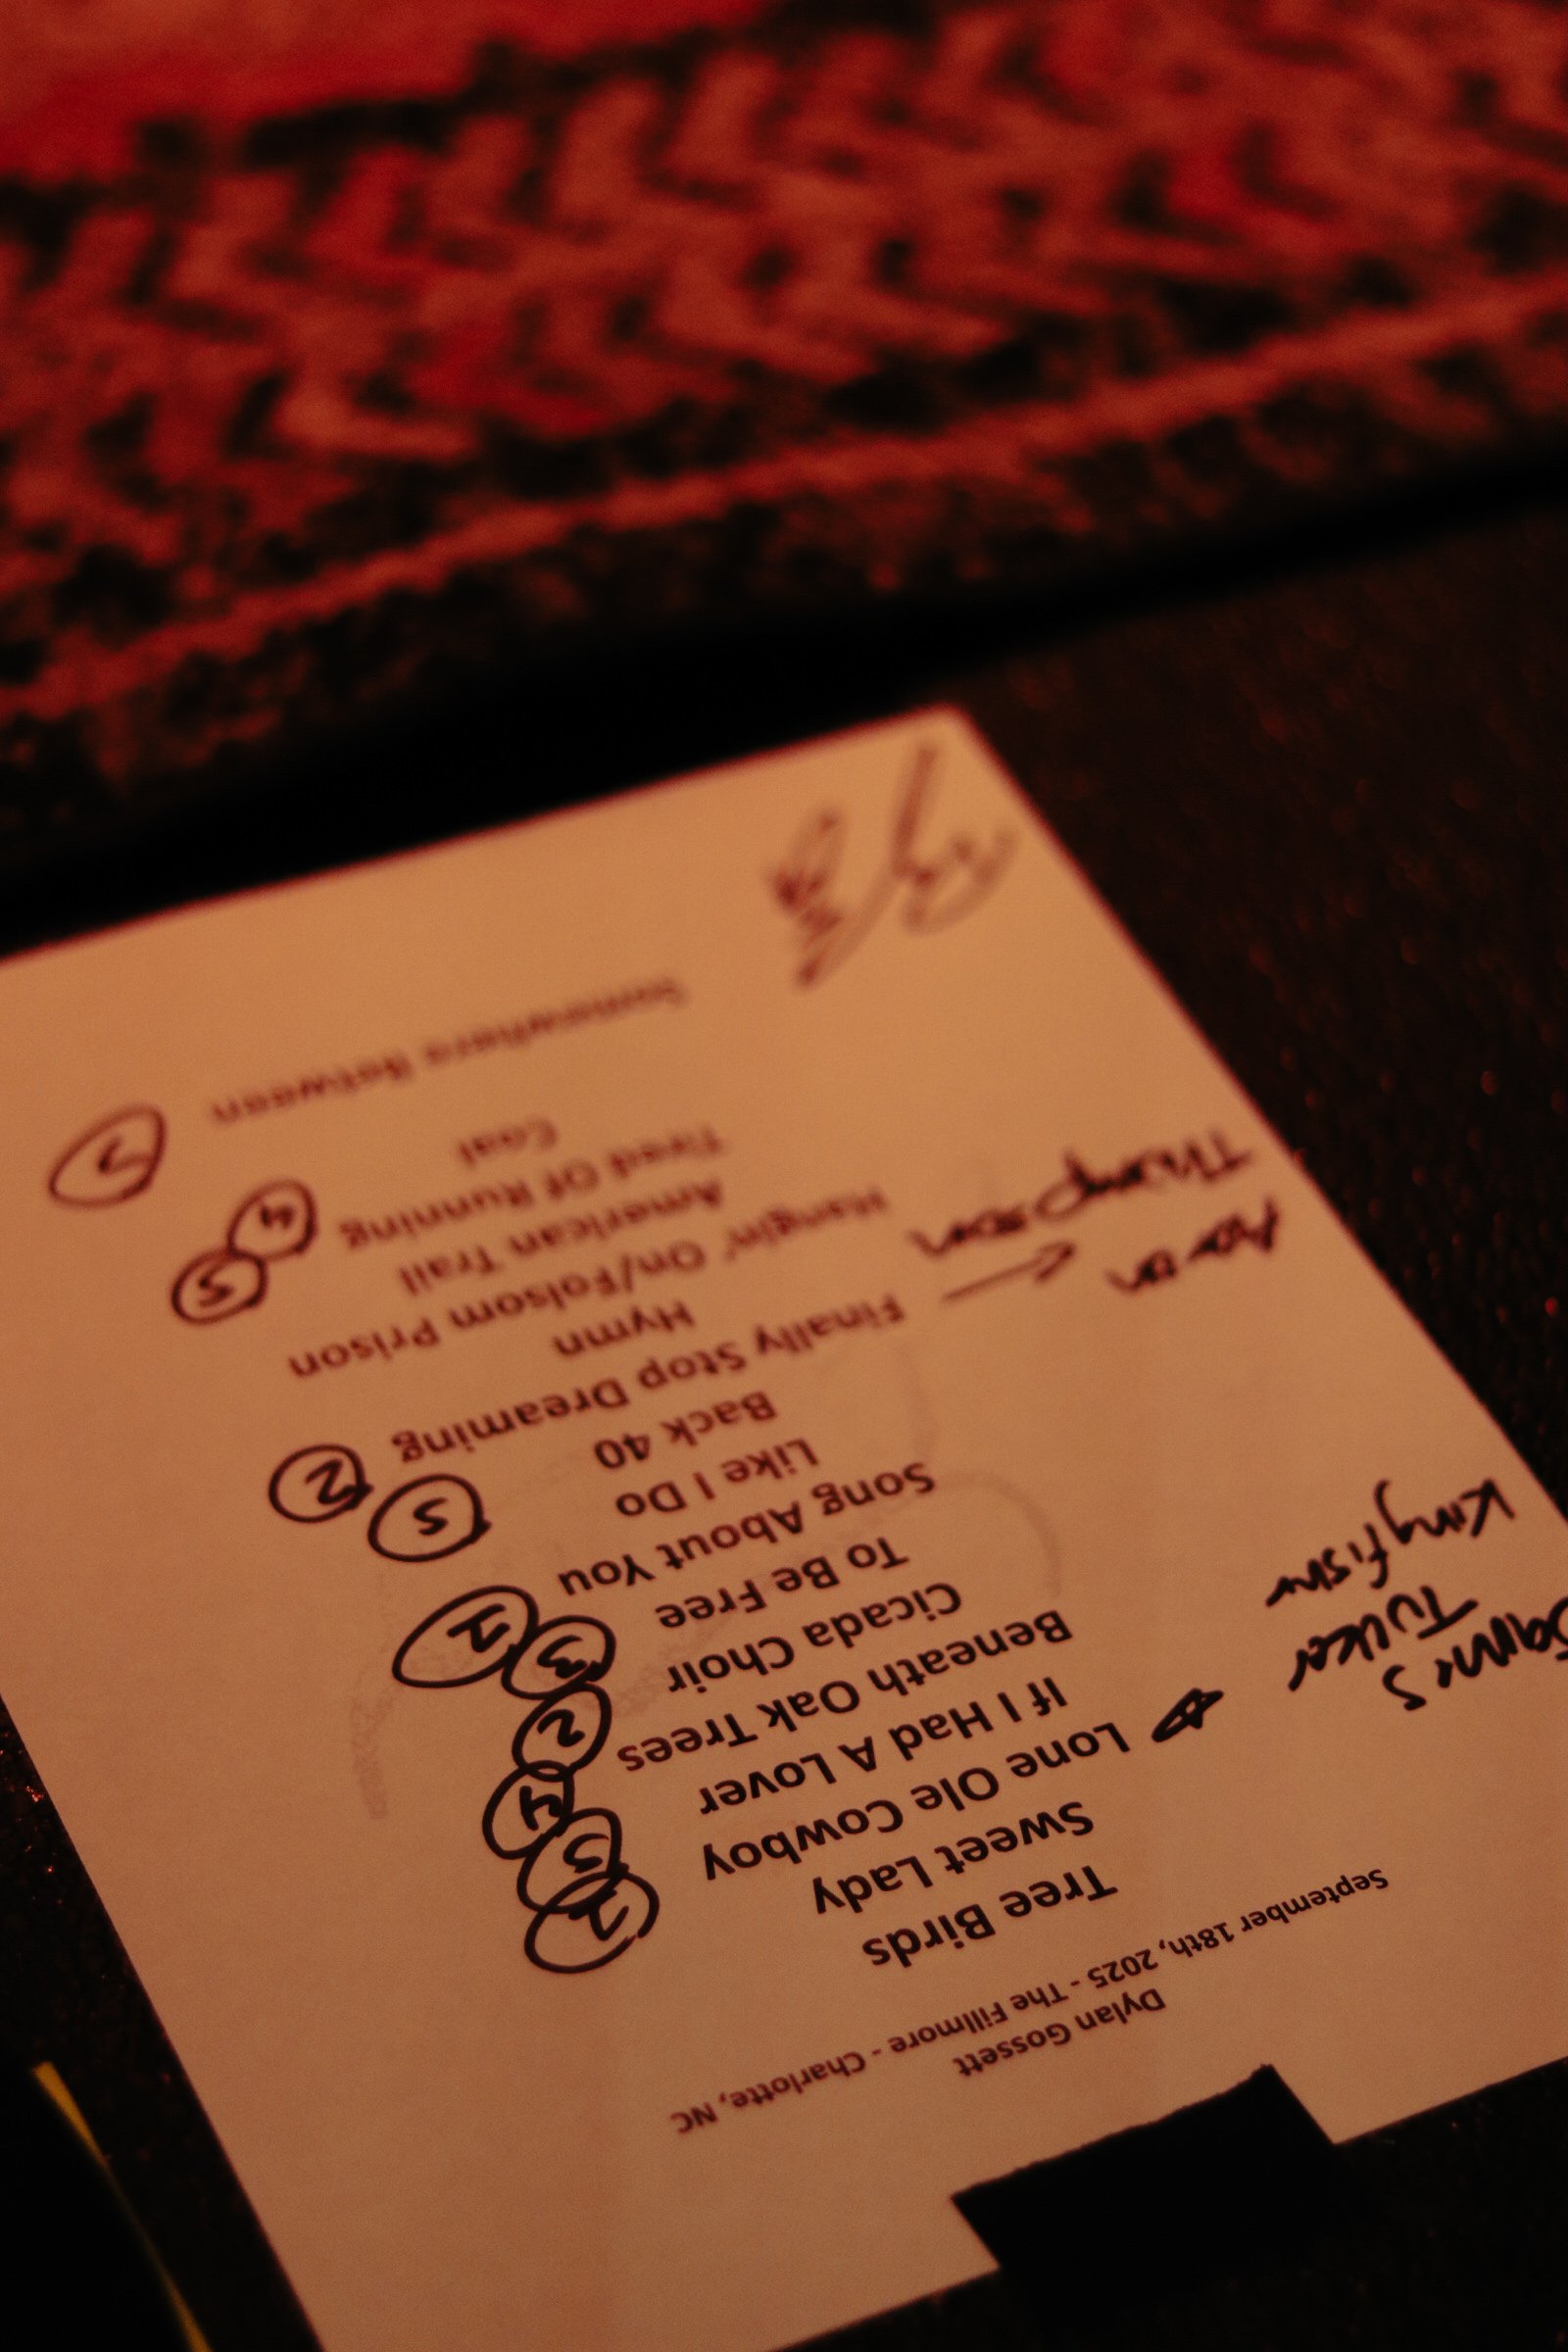 Dylan Gossett
September 18th, 2025 - The Fillmore - Charlotte, NC
Tree Birds
Sweet Lady
Lone Ole Cowboy
If I Had A Lover
Beneath Oak Trees
Cicada Choir
To Be Free
Song About You
Like I Do
Back 40
Finally Stop Dreaming
Hymn
Hangin' On/Folsom Prison
American Trail
Tired Of Running
Coal
Somewhere Between
James
Tucker
Kingfisher
Thompson
5
4
2
3
5
2
5
4